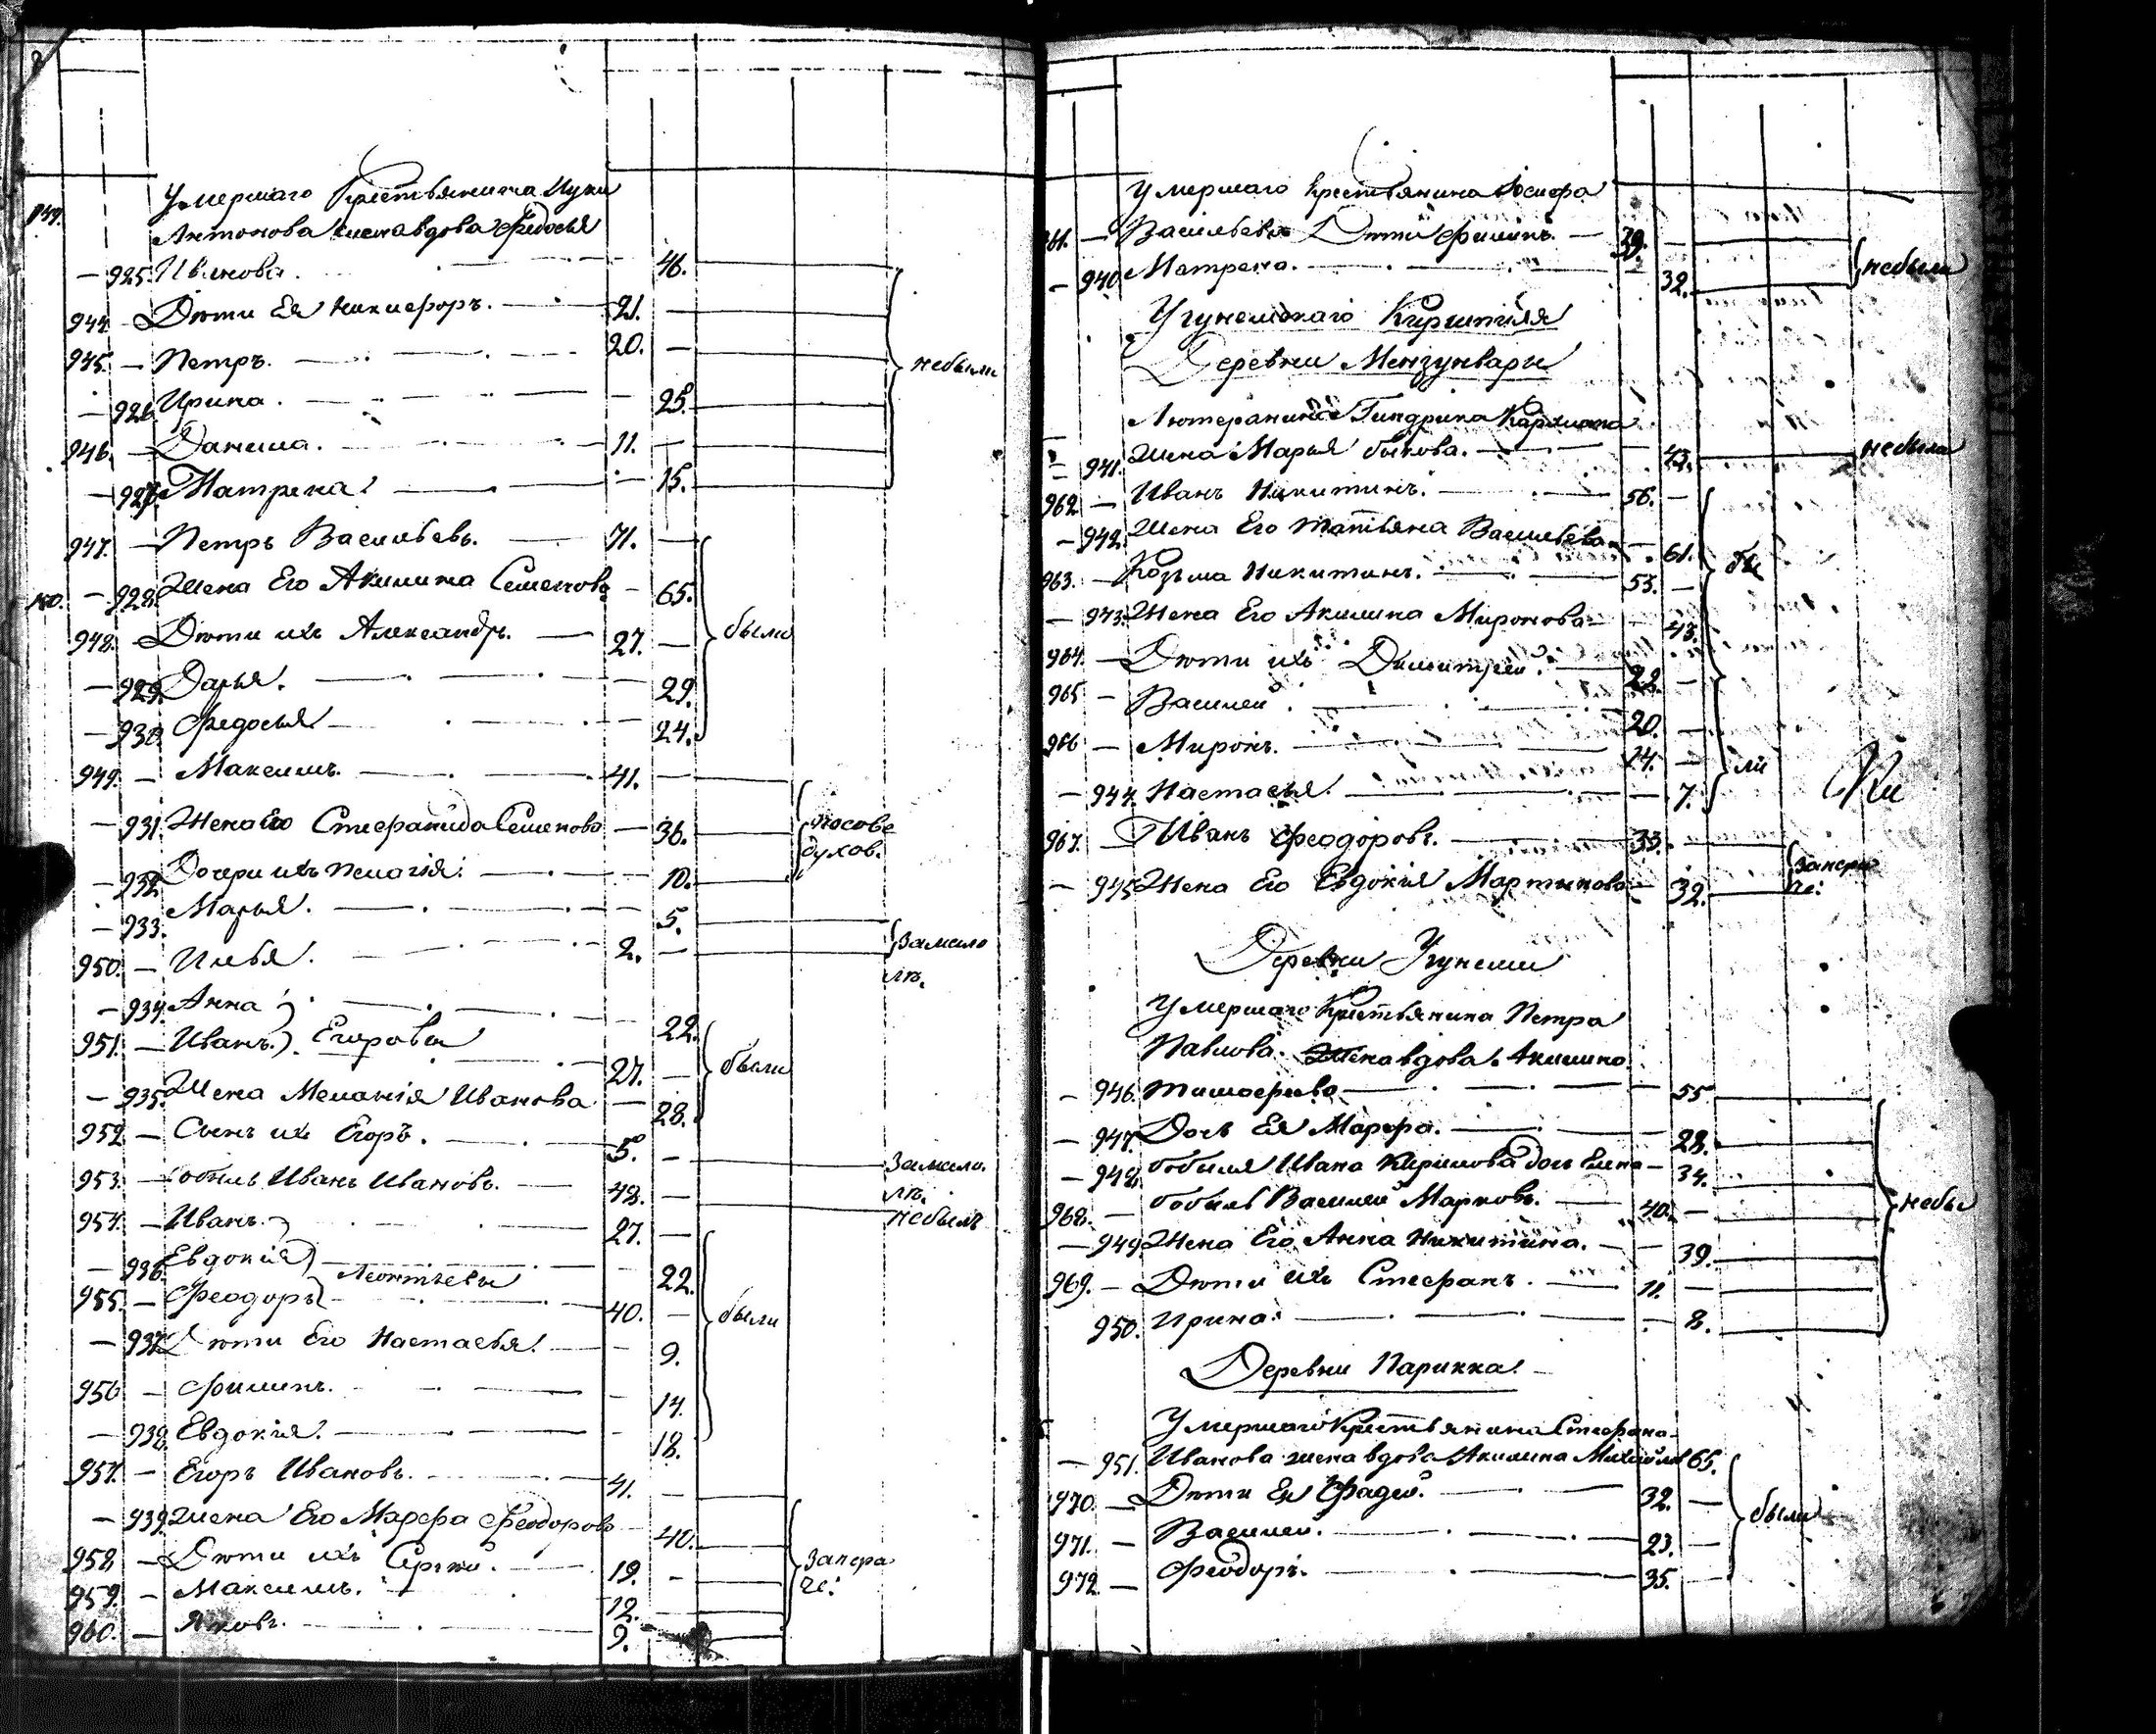 149. Умершаго Крестьянина Луки
Антонова жена вдова Федосья
— 925. Иванова. — 46.
944. — Дѣти Ея Никифоръ. — 21. —
945. — Петръ. — 20. —
небыли
— 926. Ирина. — 25.
946. — Данила. — 11. —
— 927. Матрена. — 15.
947. — Петръ Васильевъ. — 71. —
150. — 928. Жена Его Акилина Семенова — 65.
948. — Дѣти ихъ Александръ. — 27. —
были
— 929. Дарья. — 29.
— 930. Федосья — 24.
949. — Максимъ. — 41. —
— 931. Жена Его Стефанида Семенова — 36.
— 932. Дочери ихъ Пелагія. — 10.
духов.
— 933. Марья. — 5.
950. — Илья. — 2. —
замало
лѣ.
— 934. Анна — 22.
951. — Иванъ. Егоровы — 27. —
были
— 935. Жена Меланія Иванова — 28.
952. — Сынъ ихъ Егоръ. — 5. —
замало.
лѣ.
953. — Бобыль Иванъ Ивановъ. — 48. —
небылъ
954. — Иванъ. — 27. —
— 936. Евдокія Леонтьевы — 22.
955. — Феодоръ — 40. —
были
— 937. Дѣти Его Настасья. — 9.
956 — Филипъ. — 14.
— 938. Евдокія. — 18.
957. — Егоръ Ивановъ. — 41. —
— 939. Жена Его Марфа Феодорова — 40.
958. — Дѣти ихъ Сергей. — 19. —
занера
че:
959. — Максимъ. — 12. —
960. — Яковъ. — 9.
Умершаго Крестьянина Іосифа
961. — Васильева Дѣти Филипъ. — 39. —
— 940. Матрена. — 32.
небыли
Угунемскаго Киршпиля
Деревни Мензунвари
Лютеранина Гиндрика
— 941. Жена Марья Быкова. — 43.
небыла
962. — Иванъ Никитинъ. — 56. —
— 942. Жена Его Татьяна Васильева — 61.
963. — Козьма Никитинъ. — 53. —
— 943. Жена Его Акилина Миронова — 43.
964. — Дѣти ихъ Димитрей. — 22. —
965 — Василей. — 20. —
966 — Миронъ. — 14. —
бы
ли
— 944. Настасья. — 7.
967. — Иванъ Феодоровъ. — 33. —
— 945. Жена Его Евдокія Мартинова — 32.
занера
че:
Деревни Угунеми
Умершаго Крестьянина Петра
Павлова. Жена вдова Акилина
— 946. Тимофеева — 55
— 947. Дочь Ея Марфа. — 28.
— 948. Бобыля Ивана Кирилова дочь Елена — 34.
968. — Бобыль Василей Марковъ. — 40. —
небы
— 949. Жена Его Анна Никитина. — 39.
969. — Дѣти ихъ Стефанъ. — 11. —
950. Ирина. — 8.
Деревни Парикка.
Умершаго Крестьянина Стефана
— 951. Иванова жена вдова Акилина Михайлов 65.
970. — Дѣти Ея Фадей. — 32. —
были
971. — Василей. — 23. —
972. — Феодоръ. — 35. —